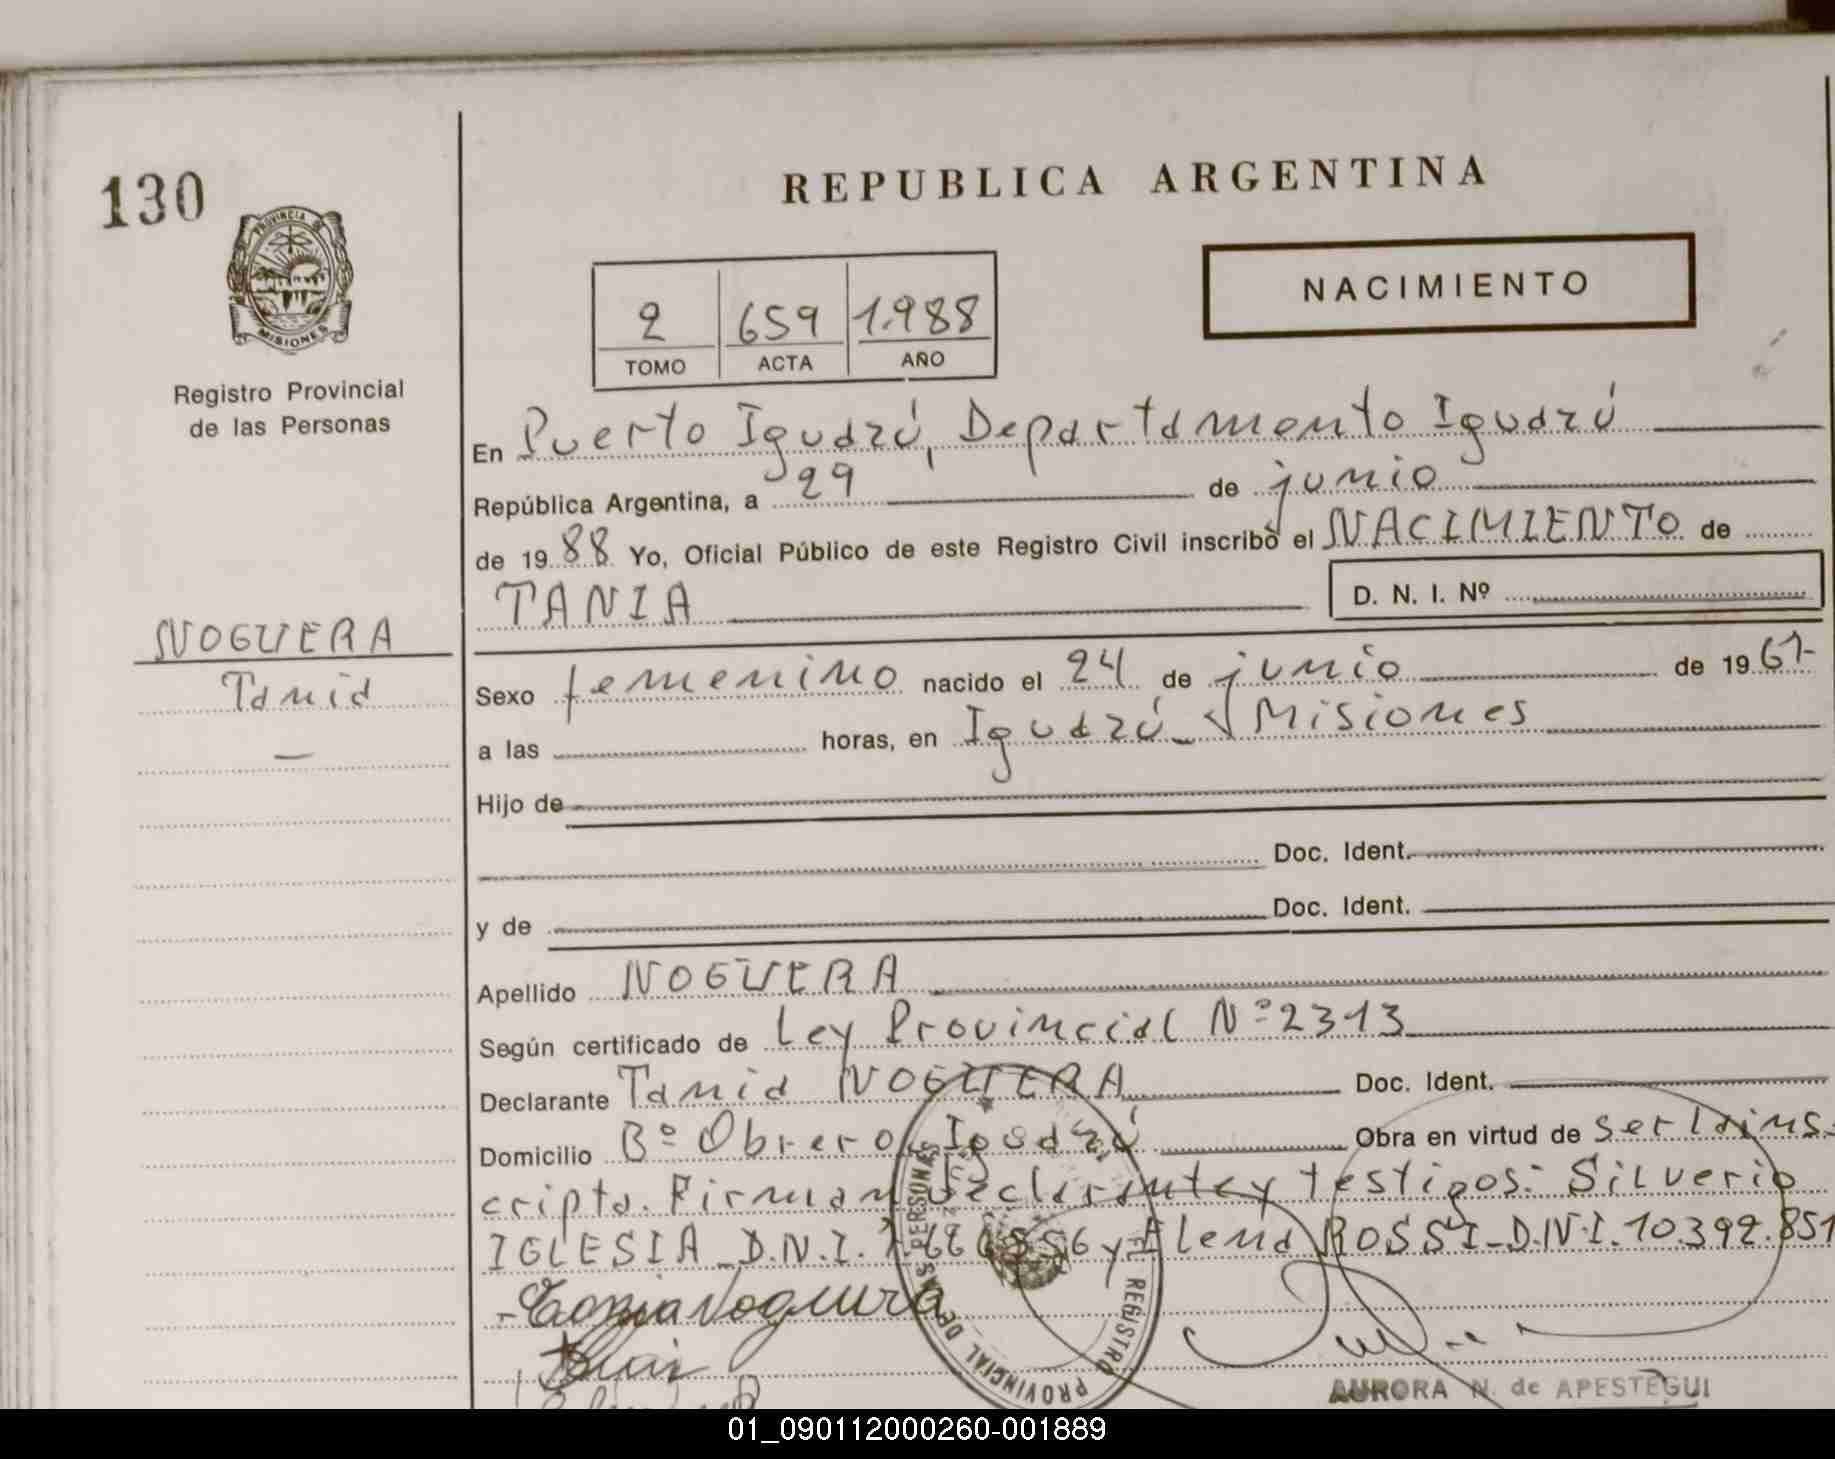 130
PROVINCIA DE
MISIONES
Registro Provincial
de las Personas
REPUBLICA ARGENTINA
2 659 1.988
TOMO ACTA AÑO
NACIMIENTO
En Puerto Iguazú, Departamento Iguazú
República Argentina, a 29 de junio
de 1988 Yo, Oficial Público de este Registro Civil inscribo el NACIMIENTO de
TANIA D. N. I. Nº
NOGUERA
Tania
Sexo femenino nacido el 24 de junio de 1967-
a las horas, en Iguazú - Misiones
Hijo de
Doc. Ident.
y de Doc. Ident.
Apellido NOGUERA
Según certificado de Ley Provincial Nº 2313
Declarante Tania NOGUERA Doc. Ident.
Domicilio Bº Obrero, Iguazú Obra en virtud de ser la ins-
cripta. Firman declarante y testigos: Silverio
IGLESIA D.N.I. y Elena ROSSI - D.N.I. 10.392.851
Tania Noguera
REGISTRO PROVINCIAL DE LAS PERSONAS
AURORA N. de APESTEGUI
01_090112000260-001889